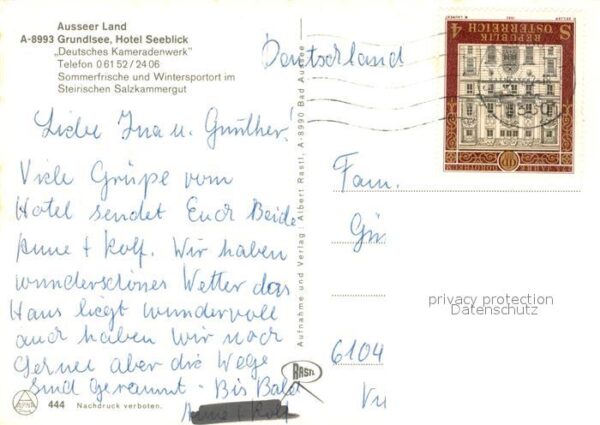 Ausseer Land
A-8993 Grundlsee, Hotel Seeblick
„Deutsches Kameradenwerk"
Telefon 0 61 52 / 24 06
Sommerfrische und Wintersportort im
Steirischen Salzkammergut
Deutschland
REPUBLIK
ÖSTERREICH
S 4
Liebe Ina u. Günther!
Viele Grüße vom
Hotel sendet Euch Beide
Anne + Rolf. Wir haben
wunderschönes Wetter das
Haus liegt wundervoll
auch haben wir noch
Schnee aber die Wege
sind geräumt - Bis Bald
Anne + Rolf
Aufnahme und Verlag: Albert Rastl, A-8990 Bad Aussee
RASTL
444 Nachdruck verboten.
Fam.
Gü
6104
privacy protection
Datenschutz